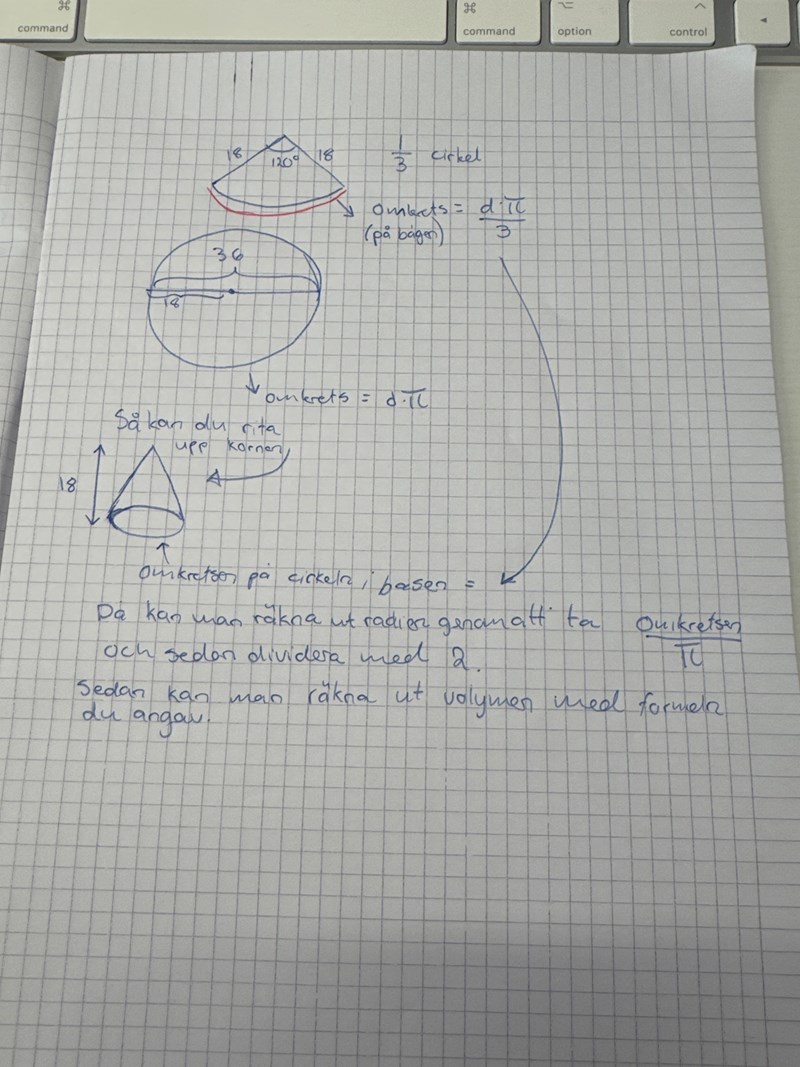 ⌘
command
⌘
command
⌥
option
^
control
◂
18
120°
18
1/3 cirkel
omkrets = d·π/3
(på bågen)
36
18
omkrets = d·π
Så kan du rita
upp kornen
18
Omkretsen på cirkeln i basen =
Då kan man räkna ut radien genom att ta Omkretsen/π
och sedan dividera med 2.
Sedan kan man räkna ut volymen med formeln
du angav.